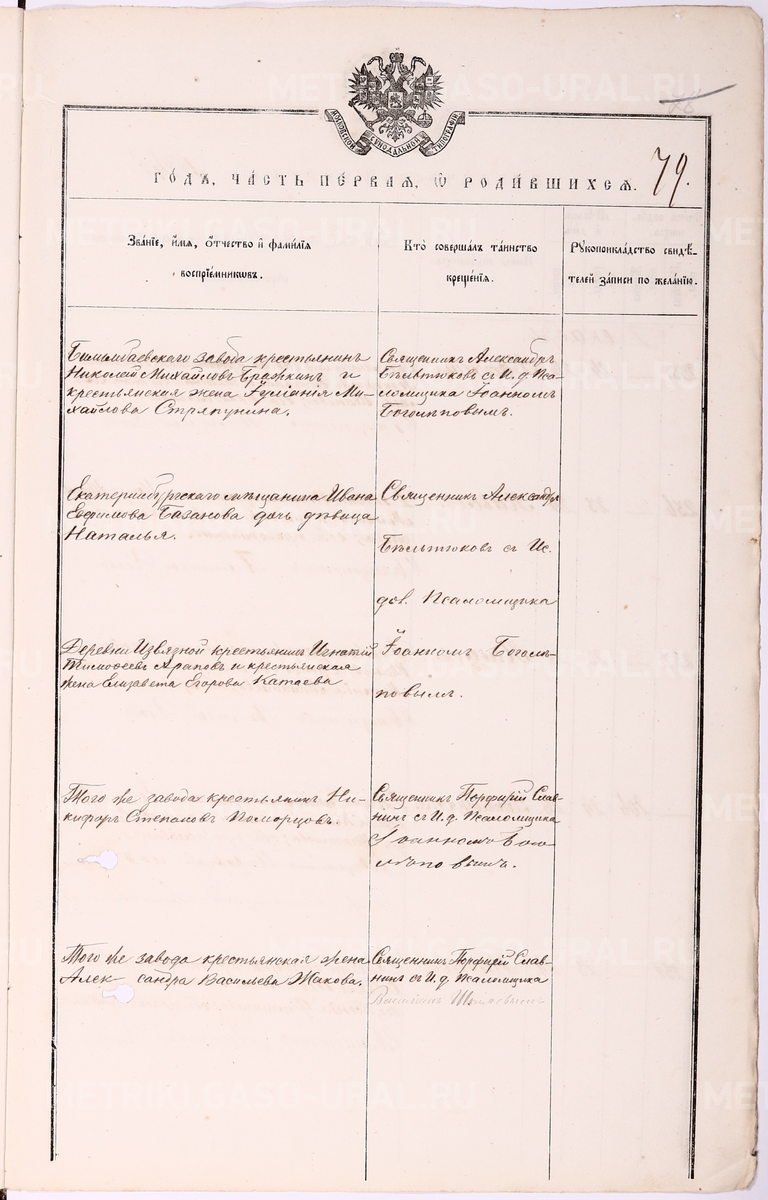 МОСКОВСКОЙ СѴНОДАЛЬНОЙ ТИПОГРАФІИ
76
79.
ГО́ДЪ, ЧА́СТЬ ПЕ́РВАЯ, Ѡ҆ РОДИ́ВШИХСЯ.
Зва́нїе, и҆́мя, о҆́тчество и҆ фами́лїя
воспрїе́мникѡвъ.
Кто̀ соверша́лъ та́инство
креще́нїя.
Рꙋкоприкла́дство свидѣ́-
телей за́писи по жела́нїю.
Билимбаевскаго завода крестьянинъ
Николай Михайловъ Бражкинъ и
крестьянская жена Іуліанія Ми-
хайлова Стряпунина.
Священникъ Александръ
Бѣльтюковъ съ И. д. Пса-
ломщика Іоанномъ
Боголѣповымъ.
Екатеринбургскаго мѣщанина Ивана
Евфимова Базанова дочь дѣвица
Наталья.
Священникъ Александръ
Бѣльтюковъ съ Ис.
дов. Псаломщика
Іоанномъ Боголѣ-
повымъ.
Деревни Извязной крестьянинъ Игнатій
Тимофеевъ Араповъ и крестьянская
жена Елизавета Егорова Катаева.
Того же завода крестьянинъ Ни-
кифоръ Степановъ Поморцовъ.
Священникъ Порфирій Слав-
нинъ съ И. д. Псаломщика
Іоанномъ Бого-
лѣповымъ.
Того же завода крестьянская жена
Александра Васильева Жакова.
Священникъ Порфирій Слав-
нинъ съ И. д. Псаломщика
METRIKI.GASO-URAL.RU